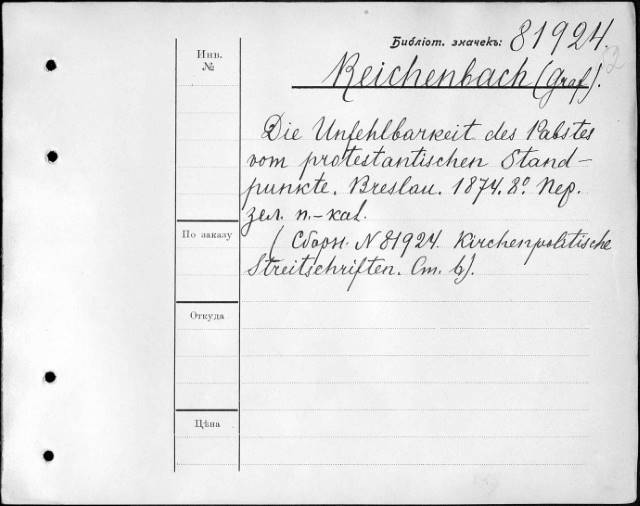 Библіот. значекъ: 81924.
Инв.
№
Reichenbach (Graf).
Die Unfehlbarkeit des Pabstes
vom protestantischen Stand-
punkte. Breslau. 1874. 8° Пер.
зел. п.-кал.
По заказу
(Сборн. N 81924. Kirchenpolitische
Streitschriften. Ст. 6).
Откуда
Цѣна